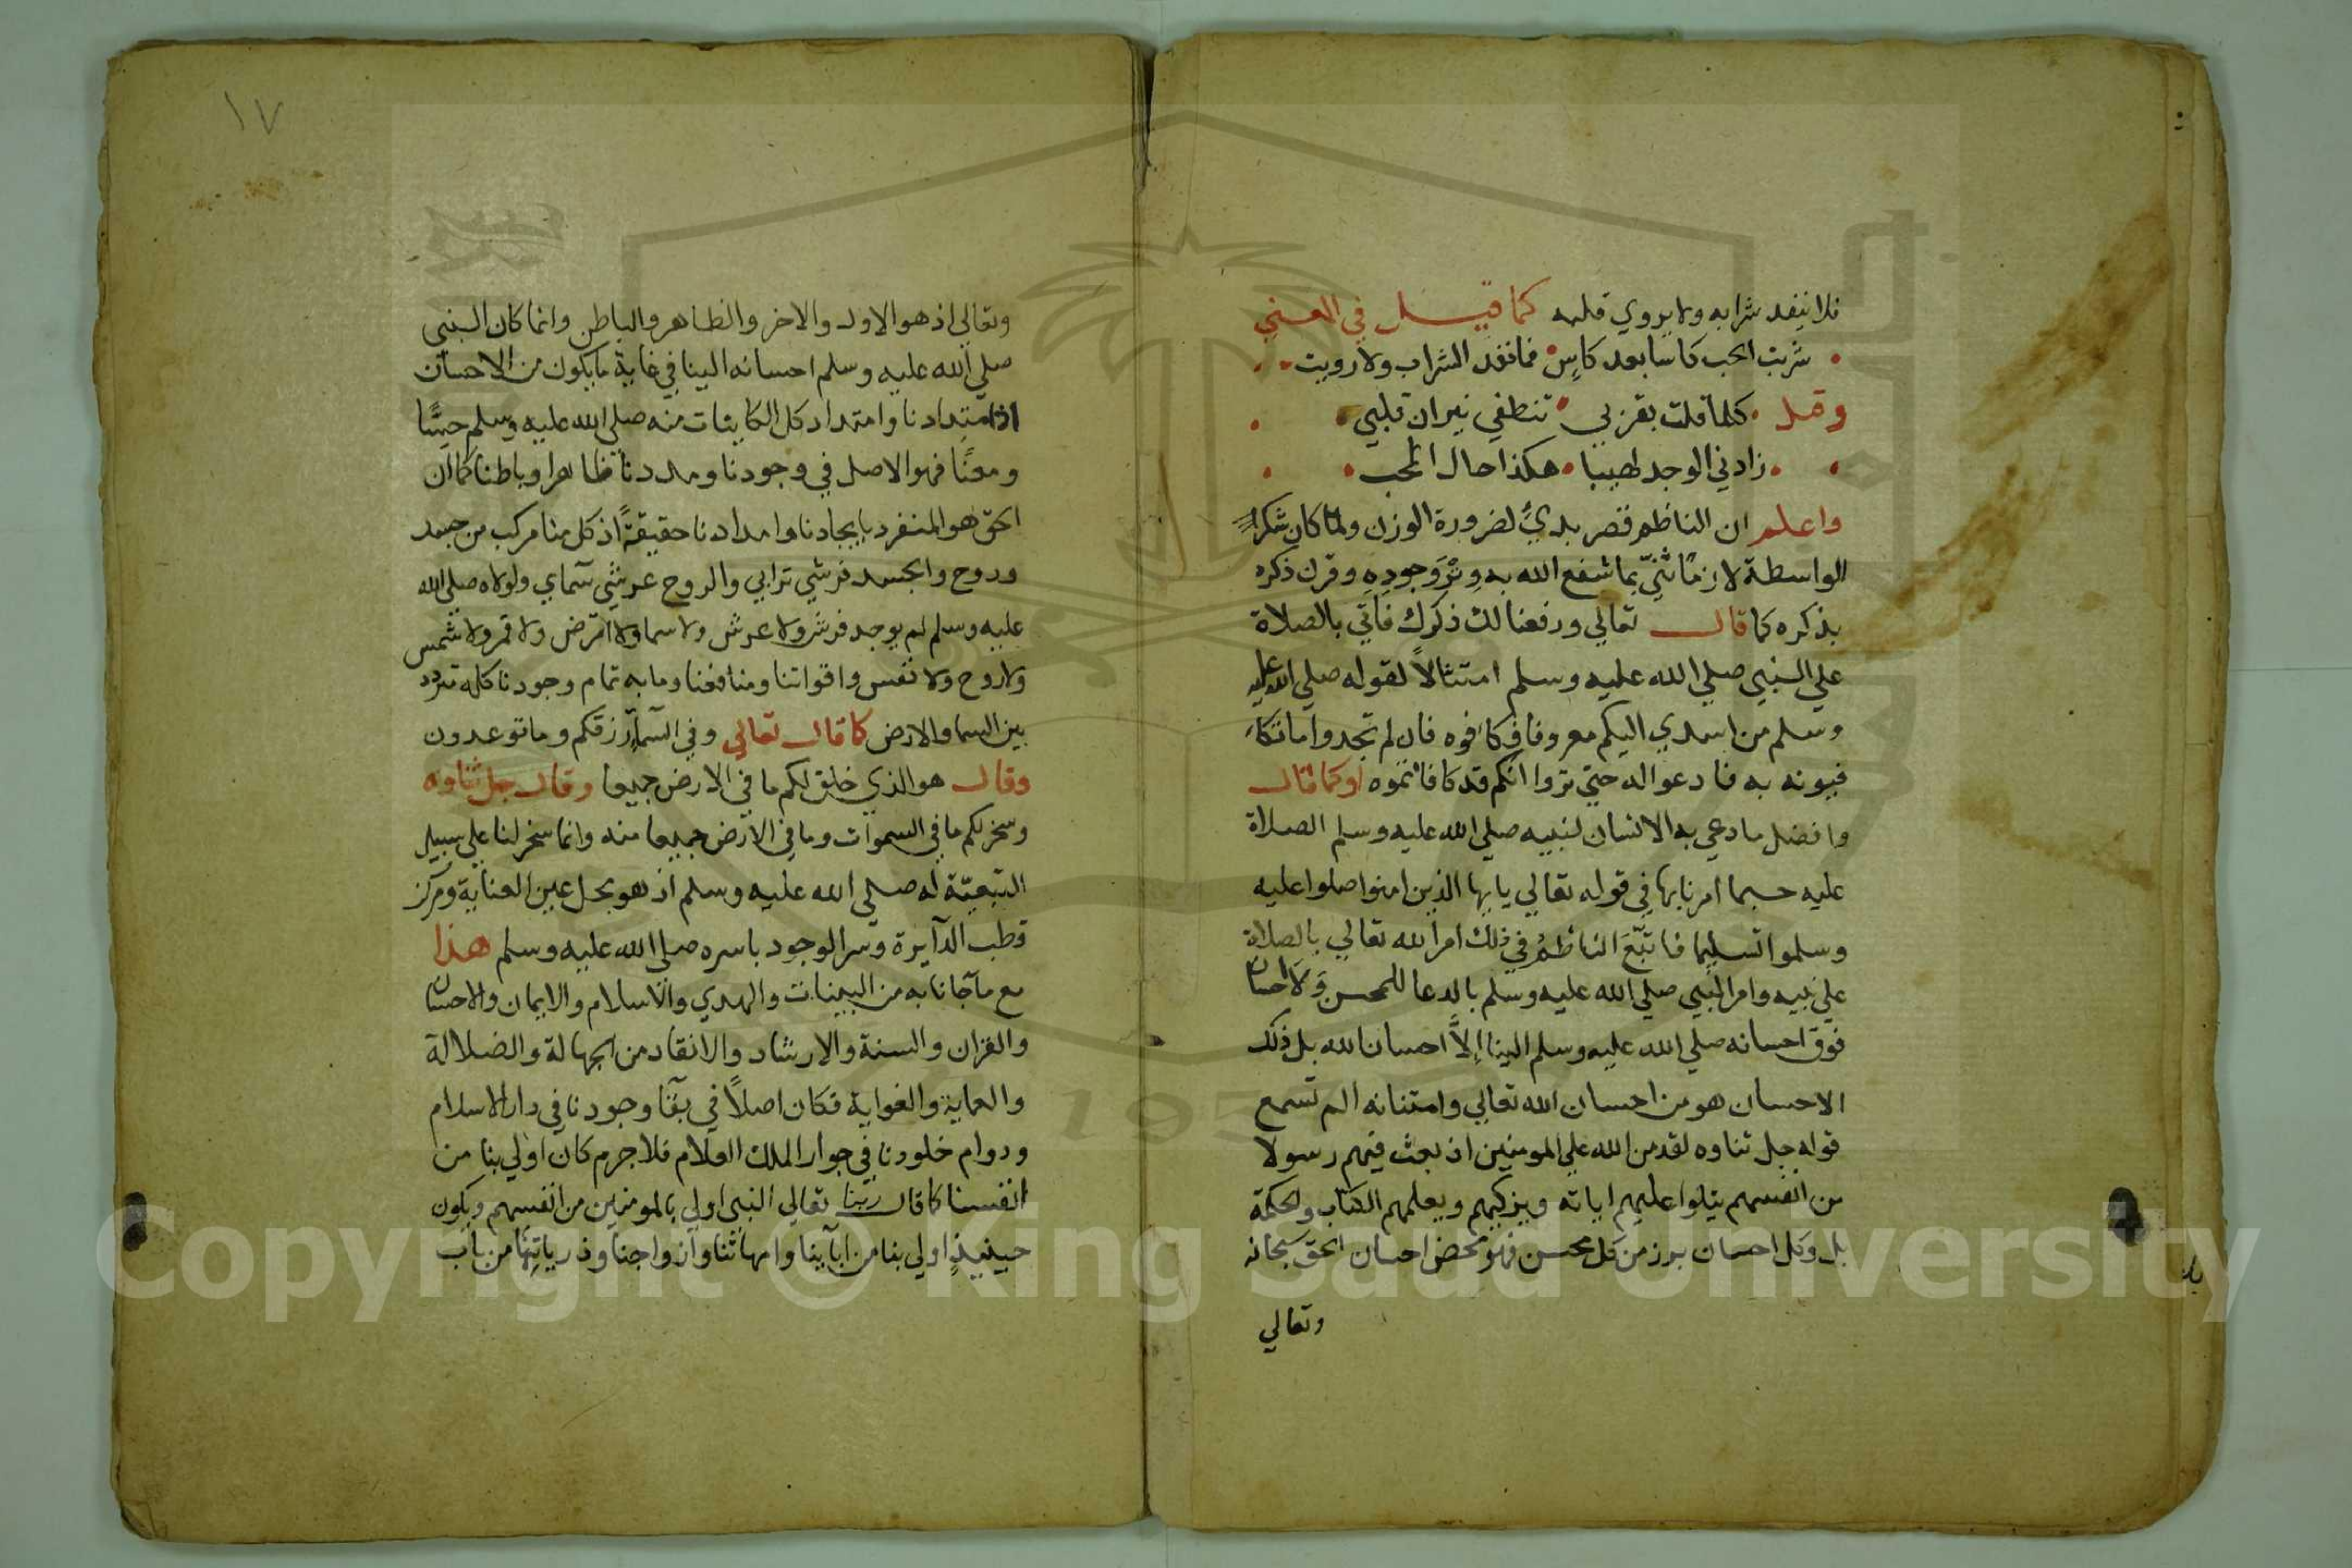 فلا ينفد شرابه ولا يروي قلبه كما قيل في المعني
شربت الحب كاسا بعد كاسٍ فما نفد الشراب ولا رويت
وقيل كلما قلت بقربي تنطفي نيران قلبي
زادني الوجد لهيبا هكذا حال المحب
واعلم ان الناظم قصر بديُ لضرورة الوزن ولما كان شكر
الواسطة لازمًا ثنيّ بما شفع الله به وِتْرَ وجودِهِ وقرن ذكره
بذكره كما قال تعالي ورفعنا لك ذكرك فاتي بالصلاة
علي النبي صلي الله عليه وسلم امتثالاً لقوله صلي الله عليه
وسلم من اسدي اليكم معروفا فكافوه فان لم تجدوا ما تكا
فيونه به فادعوا له حتي تروا انكم قد كافاتموه او كما قال
وافضل ما دعي به الانسان لنبيه صلي الله عليه وسلم الصلاة
عليه حسبما امرنا بها في قوله تعالي يايها الذين امنوا صلوا عليه
وسلموا تسليما فاتبَّعَ الناظمُ في ذلك امر الله تعالي بالصلاة
علي نبيه وامر النبي صلي الله عليه وسلم بالدعا للمحسن ولا احسان
فوق احسانه صلي الله عليه وسلم الينا إلاَّ احسان الله بل ذلك
الاحسان هو من احسان الله تعالي وامتنانه الم تسمع
قوله جل ثناوه لقد من الله علي المومنين اذ بعث فيهم رسولا
من انفسهم يتلوا عليهم اياته ويزكيهم ويعلمهم الكتاب والحكمة
بل وكل احسان برز من كل محسن فهو محض احسان الحق سبحانه
وتعالي
١٧
وتعالي اذ هو الاول والاخر والظاهر والباطن وانما كان النبي
صلي الله عليه وسلم احسانه الينا في غاية ما يكون من الاحسان
اذ امتدادنا وامتداد كل الكاينات منه صلي الله عليه وسلم حسًّا
ومعنًا فهو الاصل في وجودنا ومددنا ظاهرا وباطنا كما ان
الحق هو المنفرد بايجادنا وامدادنا حقيقةً اذ كل منا مركب من جسد
وروح والجسد فرشي ترابي والروح عرشي سماي ولولاه صلي الله
عليه وسلم لم يوجد فرش ولا عرش ولا سما ولا ارض ولا قمر ولا شمس
ولا روح ولا نفس واقواتنا ومنافعنا وما به تمام وجودنا كله تردد
بين السما والارض كما قال تعالي وفي السمآ رزقكم وما توعدون
وقال هو الذي خلق لكم ما في الارض جميعا وقال جل ثناوه
وسخر لكم ما في السموات وما في الارض جميعا منه وانما سخر لنا علي سبيل
التبعيّة له صلي الله عليه وسلم اذ هو بحل عين العناية ومركز
قطب الدآيرة وسر الوجود باسره صلي الله عليه وسلم هذا
مع مآ جانا به من البينات والهدي والاسلام والايمان والاحسان
والقران والسنة والارشاد والانقاد من الجهالة والضلالة
والعماية والغواية فكان اصلاً في بقآ وجودنا في دار الاسلام
ودوام خلودنا في جوار الملك العلام فلا جرم كان اولي بنا من
انفسنا كما قال ربنا تعالي النبي اولي بالمومنين من انفسهم ويكون
حينيذٍ اولي بنا من ابآينا وامهاتنا وازواجنا وذرياتنا من باب
Copyright © King Saud University